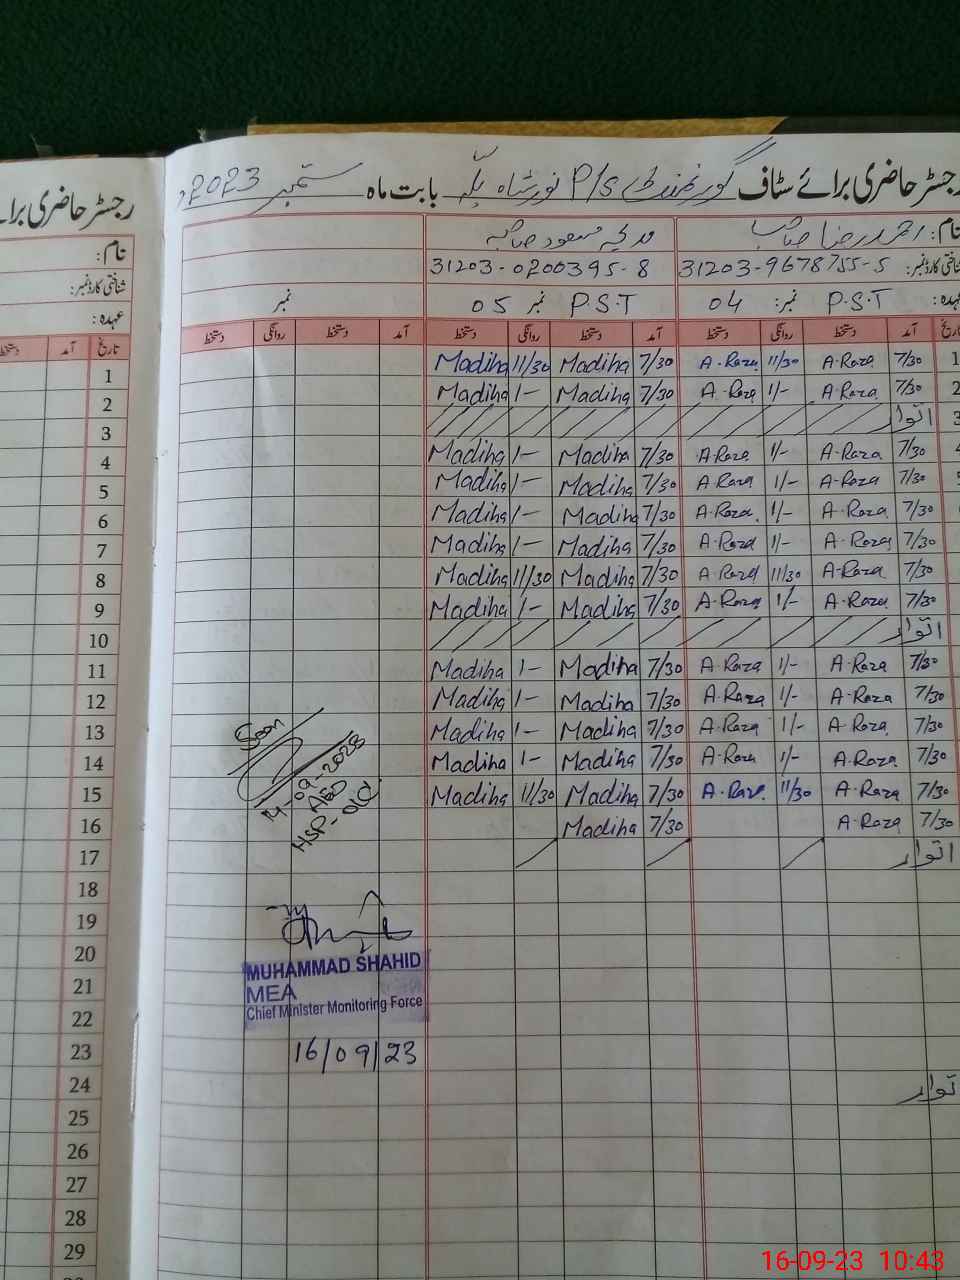 رجسٹر حاضری برائے سٹاف گورنمنٹ P/S نور شاہ بلہ بابت ماہ ستمبر 2023ء
رجسٹر حاضری برائے
نام: احمد رضا صاحب مدیحہ مسعود صاحبہ
شناختی کارڈ نمبر: 31203-9678755-5 31203-0200395-8
عہدہ: P.S.T نمبر: 04 P.S.T نمبر 05 نمبر
تاریخ آمد دستخط روانگی دستخط آمد دستخط روانگی دستخط آمد دستخط روانگی دستخط
نام:
شناختی کارڈ نمبر:
عہدہ:
تاریخ آمد دستخط
1 7/30 A-Raza 11/30 A-Raza 7/30 Madiha 11/30 Madiha
2 7/30 A-Raza 1/- A-Raza 7/30 Madiha 1- Madiha
3 اتوار
4 7/30 A-Raza 1/- A-Raza 7/30 Madiha 1- Madiha
5 7/30 A-Raza 1/- A-Raza 7/30 Madiha 1- Madiha
6 7/30 A-Raza 1/- A-Raza 7/30 Madiha 1- Madiha
7 7/30 A-Raza 1/- A-Raza 7/30 Madiha 1- Madiha
8 7/30 A-Raza 11/30 A-Raza 7/30 Madiha 11/30 Madiha
9 7/30 A-Raza 1/- A-Raza 7/30 Madiha 1- Madiha
10 اتوار
11 7/30 A-Raza 1/- A-Raza 7/30 Madiha 1- Madiha
12 7/30 A-Raza 1/- A-Raza 7/30 Madiha 1- Madiha
13 7/30 A-Raza 1/- A-Raza 7/30 Madiha 1- Madiha
14 7/30 A-Raza 1/- A-Raza 7/30 Madiha 1- Madiha
15 7/30 A-Raza 11/30 A-Raza 7/30 Madiha 11/30 Madiha
16 7/30 A-Raza 7/30 Madiha
17 اتوار
18
19
20
21
22
23
24 اتوار
25
26
27
28
29
Seen
14-09-2023
AEO
HSP-OLD
MUHAMMAD SHAHID
MEA
Chief Minister Monitoring Force
16/09/23
16-09-23 10:43